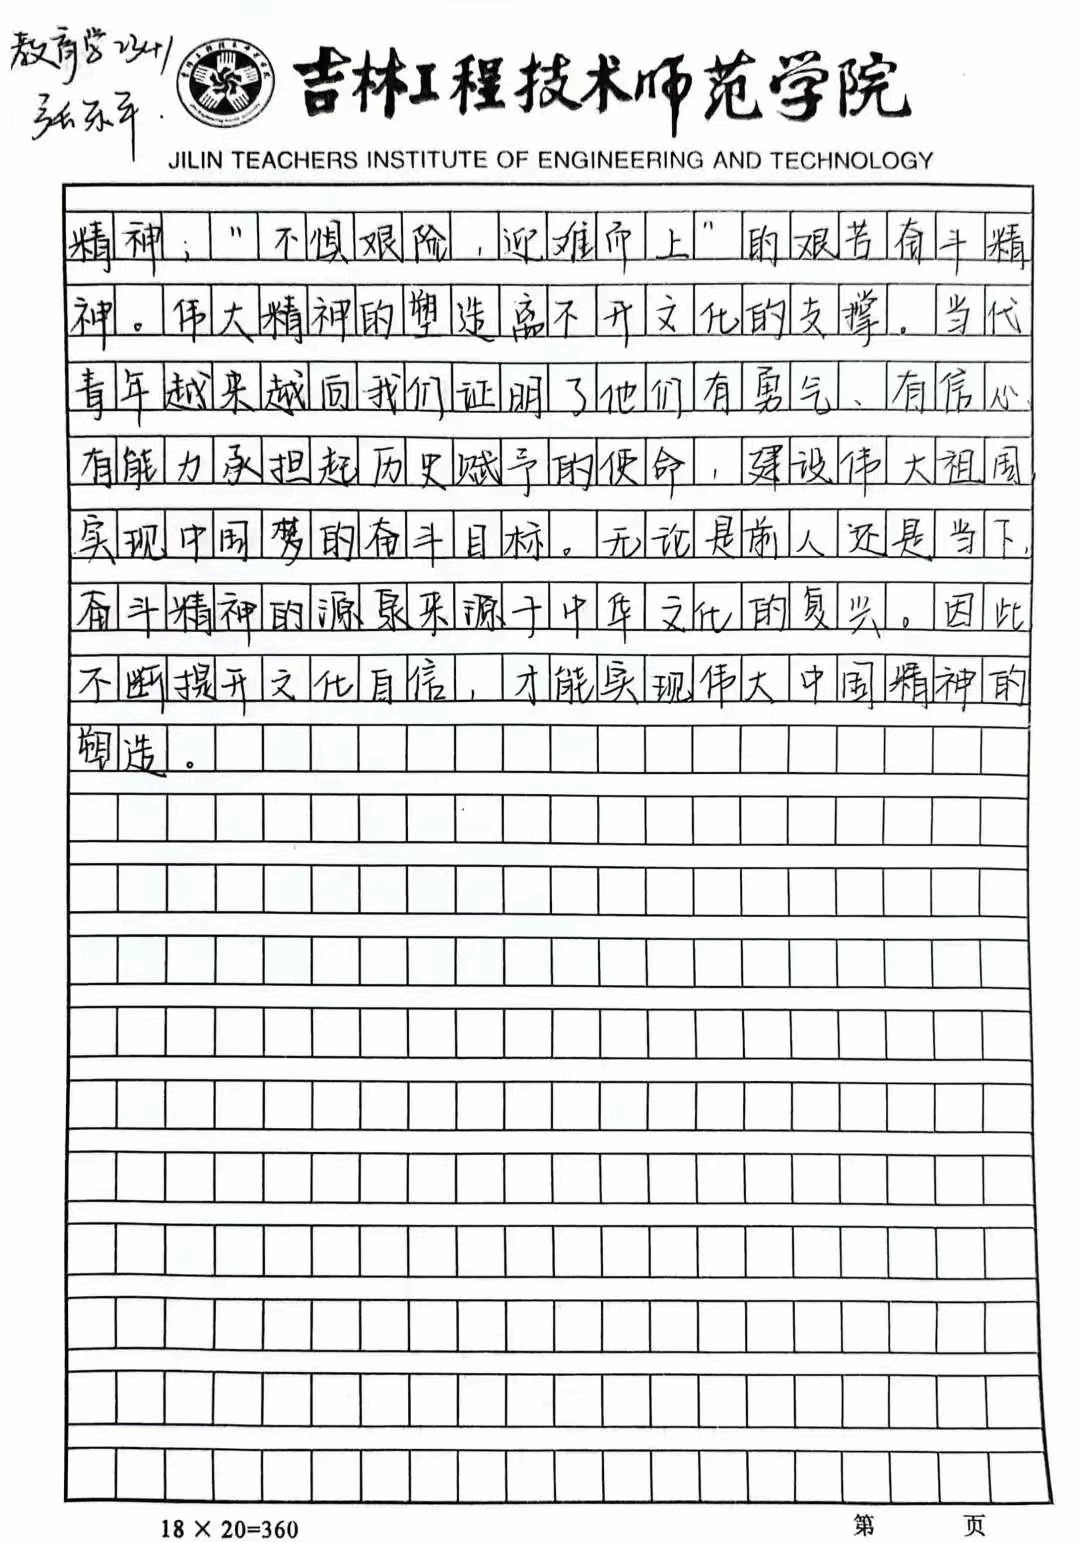 教育学2341
张东平.
吉林工程技术师范学院
JILIN TEACHERS INSTITUTE OF ENGINEERING AND TECHNOLOGY
精神；"不惧艰险，迎难而上"的艰苦奋斗精
神。伟大精神的塑造离不开文化的支撑。当代
青年越来越向我们证明了他们有勇气、有信心、
有能力承担起历史赋予的使命，建设伟大祖国，
实现中国梦的奋斗目标。无论是前人还是当下，
奋斗精神的源泉来源于中华文化的复兴。因此
不断提升文化自信，才能实现伟大中国精神的
塑造。
18 × 20=360
第 页